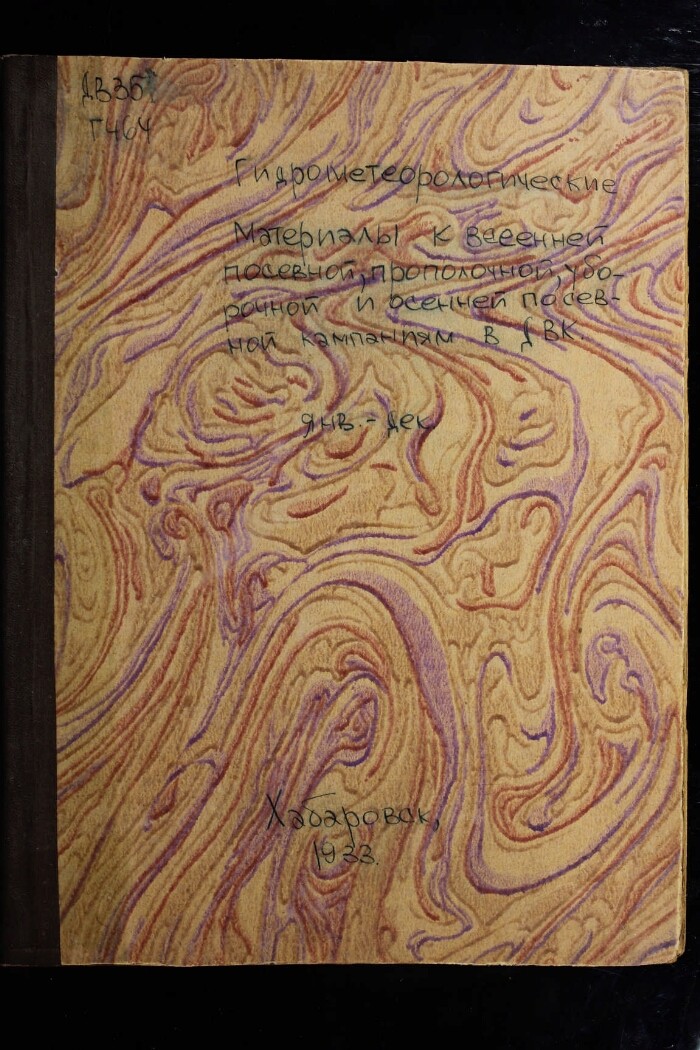 ДВ35
Г464
Гидрометеорологические
Материалы к весенней
посевной, прополочной, убо-
рочной и осенней посев-
ной кампаниям в ДВК.
янв. - дек
Хабаровск,
1933.